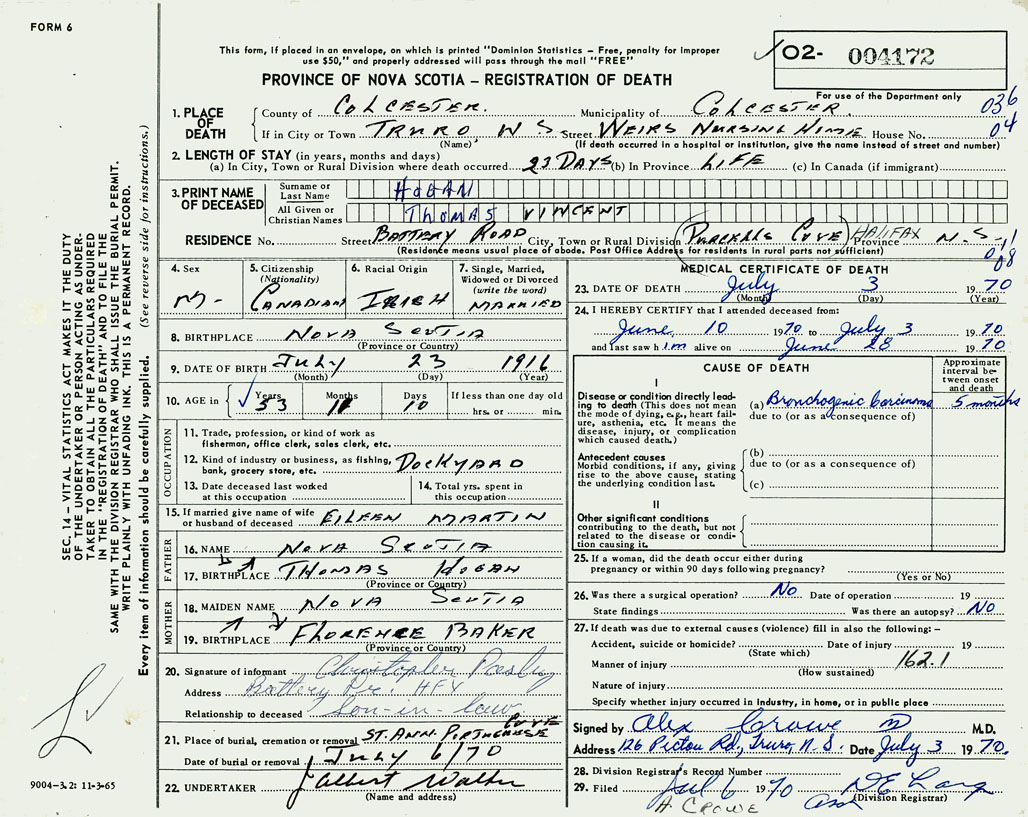 FORM 6
This form, if placed in an envelope, on which is printed "Dominion Statistics – Free, penalty for improper
use $50," and properly addressed will pass through the mail "FREE"
PROVINCE OF NOVA SCOTIA – REGISTRATION OF DEATH
02- 004172
For use of the Department only
036
04
1. PLACE OF DEATH
County of COLCESTER. Municipality of COLCESTER.
If in City or Town TRURO N S Street WEIRS NURSING HIME House No.
(Name) (If death occurred in a hospital or institution, give the name instead of street and number)
2. LENGTH OF STAY (in years, months and days)
(a) In City, Town or Rural Division where death occurred 23 DAYS (b) In Province LIFE (c) In Canada (if immigrant)
3. PRINT NAME OF DECEASED
Surname or Last Name HOGAN
All Given or Christian Names THOMAS VINCENT
RESIDENCE No. Street BATTERY ROAD City, Town or Rural Division (PURCELLS COVE) HALIFAX Province N.S. 11
(Residence means usual place of abode. Post Office Address for residents in rural parts not sufficient) 008
4. Sex M-
5. Citizenship (Nationality) CANADIAN
6. Racial Origin IRISH
7. Single, Married, Widowed or Divorced (write the word) MARRIED
8. BIRTHPLACE NOVA SCOTIA
(Province or Country)
9. DATE OF BIRTH JULY 23 1916
(Month) (Day) (Year)
10. AGE in Years 53 Months 11 Days 10 If less than one day old hrs. or min.
OCCUPATION
11. Trade, profession, or kind of work as
fisherman, office clerk, sales clerk, etc.
12. Kind of industry or business, as fishing,
bank, grocery store, etc. DOCKYARD
13. Date deceased last worked
at this occupation
14. Total yrs. spent in
this occupation
15. If married give name of wife
or husband of deceased EILEEN MARTIN
FATHER
16. NAME NOVA SCOTIA
17. BIRTHPLACE THOMAS HOGAN
(Province or Country)
MOTHER
18. MAIDEN NAME NOVA SCOTIA
19. BIRTHPLACE FLORENCE BAKER
(Province or Country)
20. Signature of informant Christopher
Address Battery Dr. HFX
Relationship to deceased Son-in-law
21. Place of burial, cremation or removal ST. ANN PORTUGUESE COVE
Date of burial or removal JULY 6/70
22. UNDERTAKER Walker
(Name and address)
MEDICAL CERTIFICATE OF DEATH
23. DATE OF DEATH July 3 1970
(Month) (Day) (Year)
24. I HEREBY CERTIFY that I attended deceased from:
June 10 1970 to July 3 1970
and last saw him alive on June 28 1970
CAUSE OF DEATH
Approximate interval between onset and death
I
Disease or condition directly leading to death (This does not mean the mode of dying, e.g., heart failure, asthenia, etc. It means the disease, injury, or complication which caused death.)
(a) Bronchogenic Carcinoma 5 months
due to (or as a consequence of)
Antecedent causes
Morbid conditions, if any, giving rise to the above cause, stating the underlying condition last.
(b)
due to (or as a consequence of)
(c)
II
Other significant conditions
contributing to the death, but not related to the disease or condition causing it.
25. If a woman, did the death occur either during
pregnancy or within 90 days following pregnancy?
(Yes or No)
26. Was there a surgical operation? No Date of operation 19
State findings Was there an autopsy? No
27. If death was due to external causes (violence) fill in also the following: –
Accident, suicide or homicide? Date of injury 19
(State which)
Manner of injury 162.1
(How sustained)
Nature of injury
Specify whether injury occurred in Industry, in home, or in public place
Signed by Alex Crowe M.D.
Address 126 Pictou Rd, Truro, N.S. Date July 3 1970.
28. Division Registrar's Record Number
29. Filed Jul 6 1970
A. CROWE (Division Registrar)
SEC. 14 – VITAL STATISTICS ACT MAKES IT THE DUTY
OF THE UNDERTAKER OR PERSON ACTING AS UNDER-
TAKER TO OBTAIN ALL THE PARTICULARS REQUIRED
IN THE "REGISTRATION OF DEATH" AND TO FILE THE
SAME WITH THE DIVISION REGISTRAR WHO SHALL ISSUE THE BURIAL PERMIT.
WRITE PLAINLY WITH UNFADING INK. THIS IS A PERMANENT RECORD.
Every item of information should be carefully supplied. (See reverse side for instructions.)
9004-3.2: 11-3-65